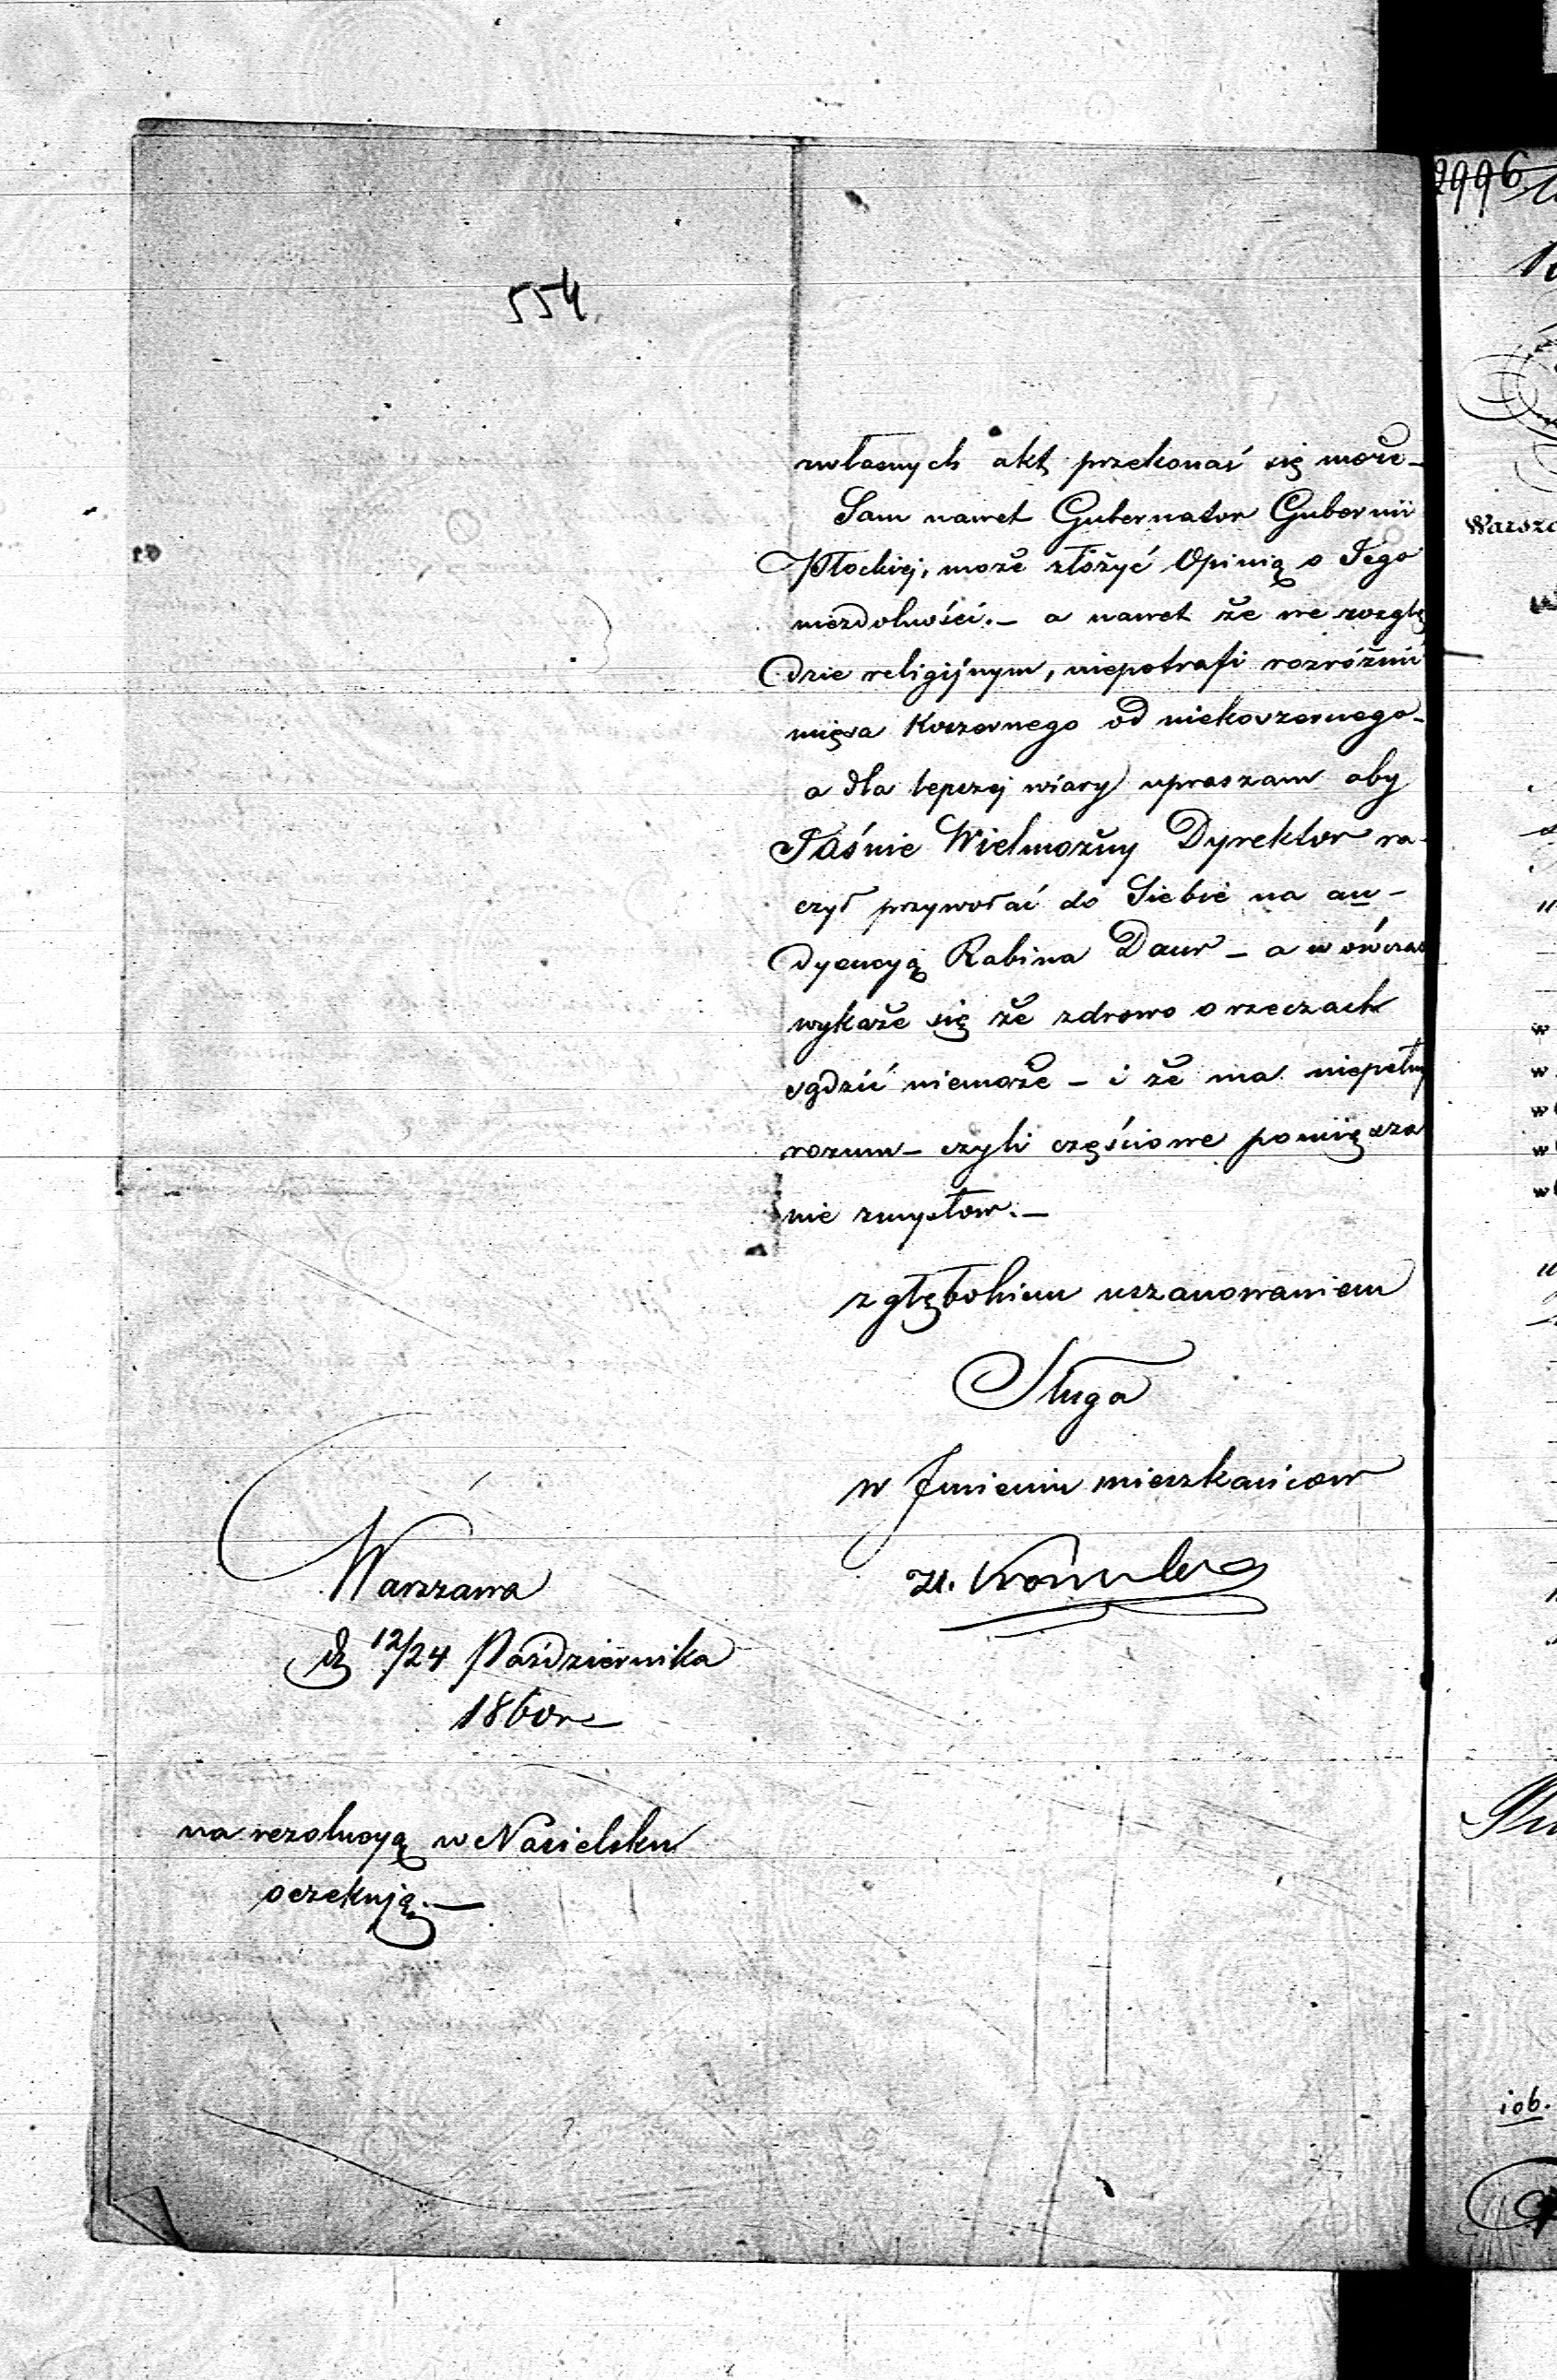 554
zwłasnych akt przekonać się może –
Sam nawet Gubernator Gubernii
Płockiej, może złożyć Opinią o Jego
niezdolności. – a nawet że we wzglę
dzie religijnym, niepotrafi rozróżnić
mięsa Koszernego od niekoszernego –
a dla lepszej wiary upraszam aby
Jaśnie Wielmożny Dyrektor ra-
czył przywołać do Siebie na au-
dyencyą Rabina Daur – a wówczas
wykaże się że zdrowo o rzeczach
sądzić niemoże – i że ma niepełny
rozum – czyli częściowe pomięsza
nie zmysłow. –
z głębokiem uszanowaniem
Sługa
w Jmieniu mieszkańcow
Warszawa
d. 12/24 Października
1860 r
na rezolucyą w Nasielsku
oczekują. –
2996
Warsza
iob.